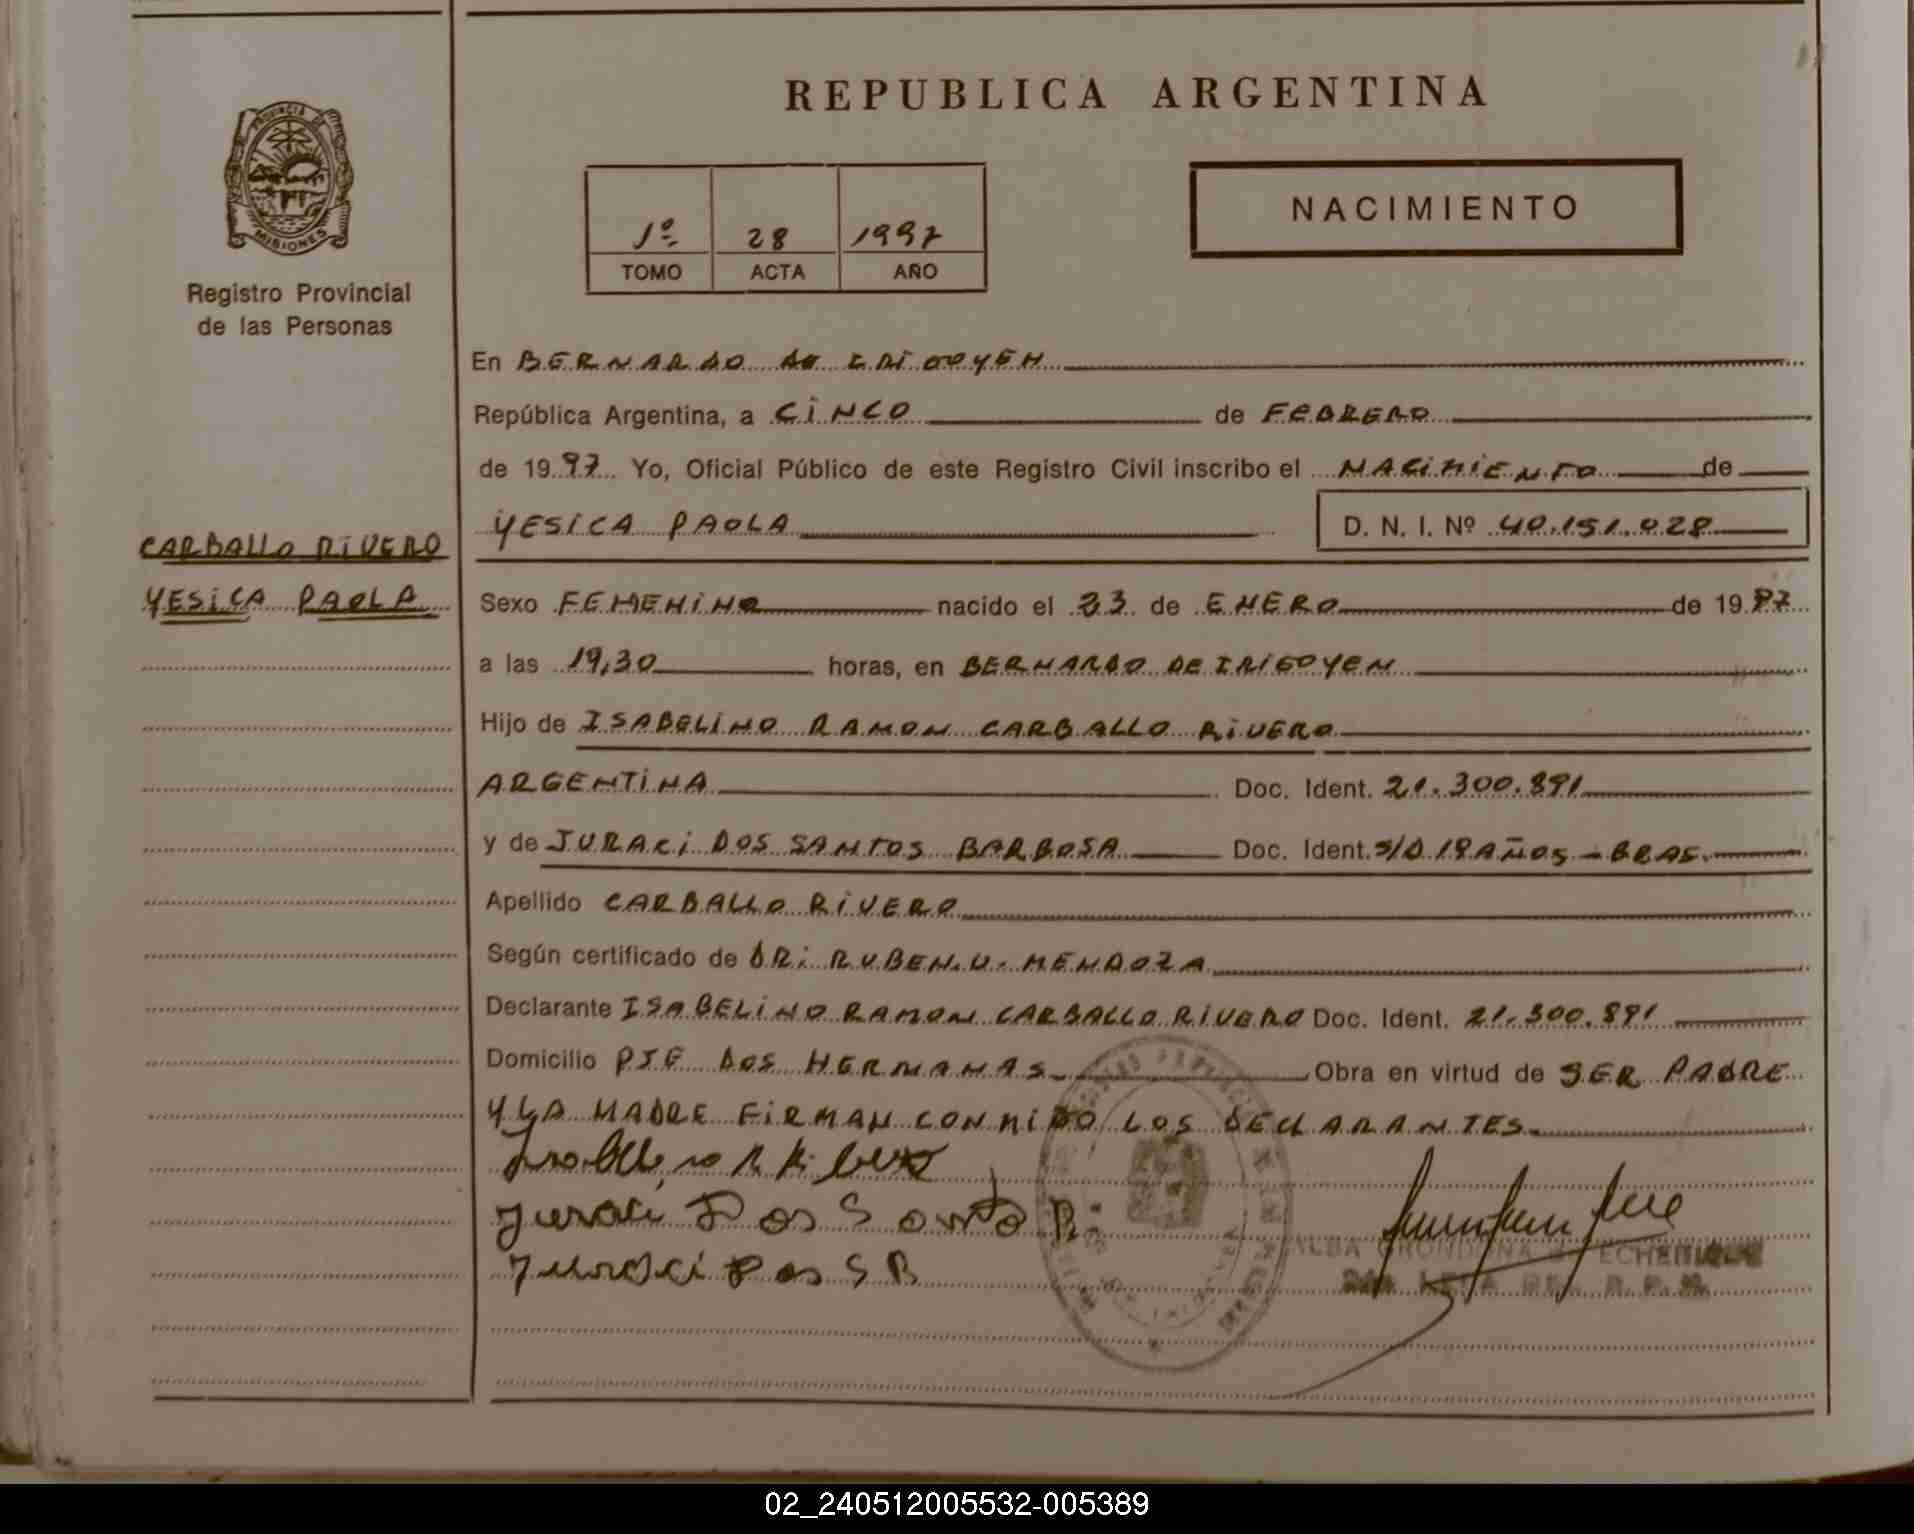 REPUBLICA ARGENTINA
PROVINCIA DE
MISIONES
Registro Provincial
de las Personas
1º 28 1997
TOMO ACTA AÑO
NACIMIENTO
En BERNARDO DE IRIGOYEN
República Argentina, a CINCO de FEBRERO
de 1997 Yo, Oficial Público de este Registro Civil inscribo el NACIMIENTO de
YESICA PAOLA D. N. I. Nº 40.151.028
CARBALLO RIVERO
YESICA PAOLA
Sexo FEMENINO nacido el 23 de ENERO de 1997
a las 19,30 horas, en BERNARDO DE IRIGOYEN
Hijo de ISABELINO RAMON CARBALLO RIVERO
ARGENTINA Doc. Ident. 21.300.891
y de JURACI DOS SANTOS BARBOSA Doc. Ident. S/D 19 AÑOS - BRAS.
Apellido CARBALLO RIVERO
Según certificado de DR: RUBEN.U. MENDOZA
Declarante ISABELINO RAMON CARBALLO RIVERO Doc. Ident. 21.300.891
Domicilio PJE DOS HERMANAS Obra en virtud de SER PADRE
Y LA MADRE FIRMAN CONMIGO LOS DECLARANTES
Juraci Dos Santo B.
Juraci Dos S B
ALBA GRONDONA ECHENIQUE
02_240512005532-005389